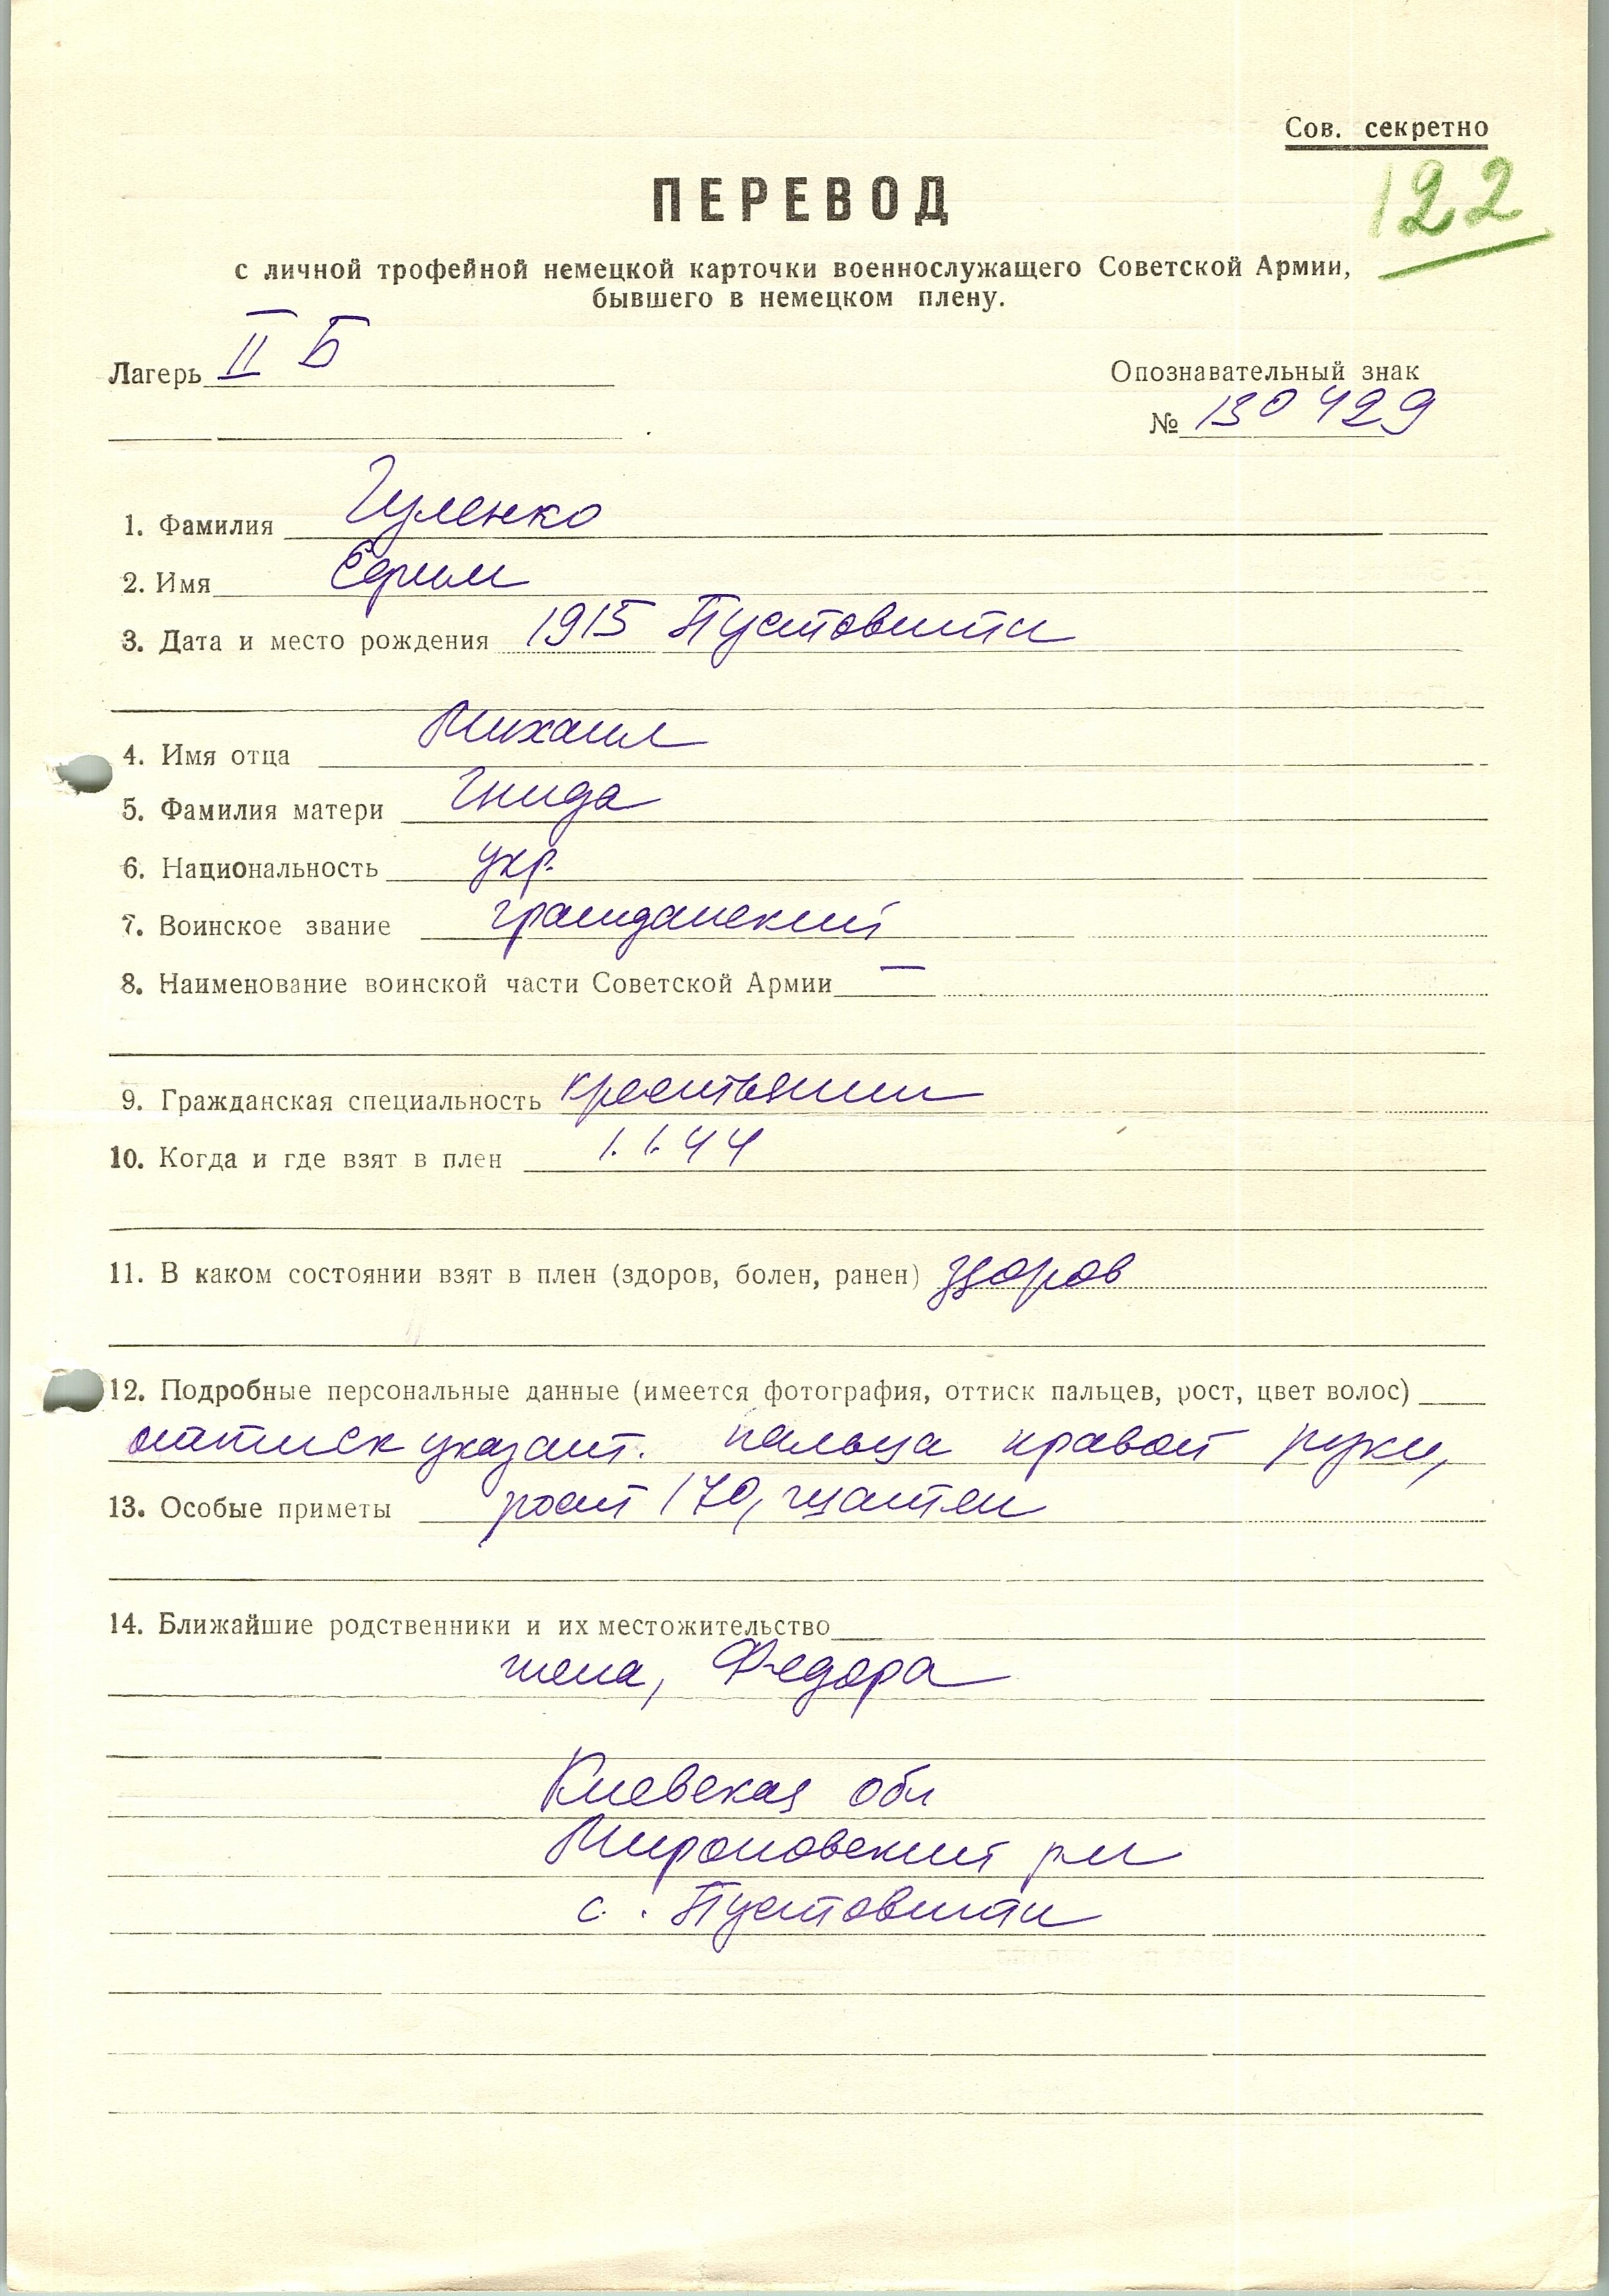 Сов. секретно
122
ПЕРЕВОД
с личной трофейной немецкой карточки военнослужащего Советской Армии,
бывшего в немецком плену.
Лагерь II Б
Опознавательный знак
№ 130429
1. Фамилия Гуленко
2. Имя Ефим
3. Дата и место рождения 1915 Пустовиты
4. Имя отца Михаил
5. Фамилия матери Гнида
6. Национальность укр.
7. Воинское звание гражданский
8. Наименование воинской части Советской Армии —
9. Гражданская специальность крестьянин
10. Когда и где взят в плен 1.1.44
11. В каком состоянии взят в плен (здоров, болен, ранен) здоров
12. Подробные персональные данные (имеется фотография, оттиск пальцев, рост, цвет волос)
оттиск указат. пальца правой руки,
13. Особые приметы рост 170, шатен
14. Ближайшие родственники и их местожительство
жена, Федора
Киевская обл
Мироновский рн
с. Пустовиты